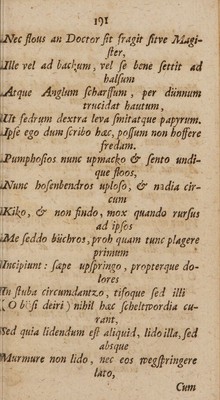 191
Nec flous an Doctor sit fragit sitve Magi-
ster,
Ille vel ad backum, vel se bene settit ad
halsum
Atque Anglum scharssum, per dünnum
trucidat hautum,
Ut sedrum dextra leva smitatque papyrum.
Ipse ego dum scribo hæc, possum non hoffere
fredam.
Pumphosios nunc upmacko & sento undi-
que floos,
Nunc hosenbendros uploso, & nadia cir-
cum
Kiko, & non findo, mox quando rursus
ad ipsos
Me seddo büchros, proh quam tunc plagere
primum
Incipiunt: sæpe upspringo, propterque do-
lores
In stuba circumdantzo, tisoque sed illi
(O deiri) nihil hæc scheltwordia cu-
rant,
Sed quia lidendum est aliquid, lido illa, sed
absque
Murmure non lido, nec eos wegspringere
lato,
Cum